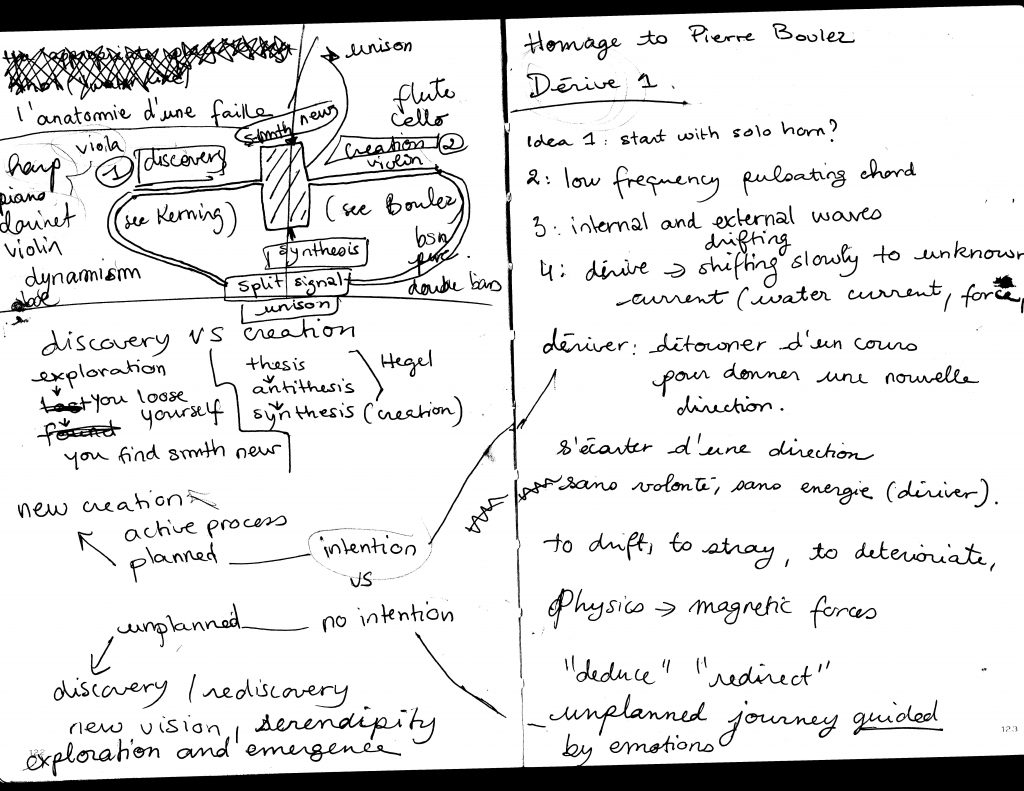 unison
l'anatomie d'une faille
flute
cello
smth new
viola
harp
piano
clarinet
violin
1 discovery
creation 2
violin
(see Kerning)
(see Boulez)
synthesis
bsn
perc.
dynamism
split signal
double bass
unison
discovery VS creation
exploration
you loose
yourself
you find smth new
thesis
antithesis
synthesis (creation)
Hegel
new creation
active process
planned
intention
VS
unplanned
no intention
discovery / rediscovery
new vision, serendipity
exploration and emergence
122
Homage to Pierre Boulez
Dérive 1.
Idea 1: start with solo horn?
2: low frequency pulsating chord
3: internal and external waves
drifting
4: dérive → shifting slowly to unknown
current (water current, force,
dériver: détourner d'un cours
pour donner une nouvelle
direction.
s'écarter d'une direction
sans volonté, sans energie (dériver).
to drift, to stray, to deterioriate,
Physics → magnetic forces
"deduce" "redirect"
unplanned journey guided
by emotions
123